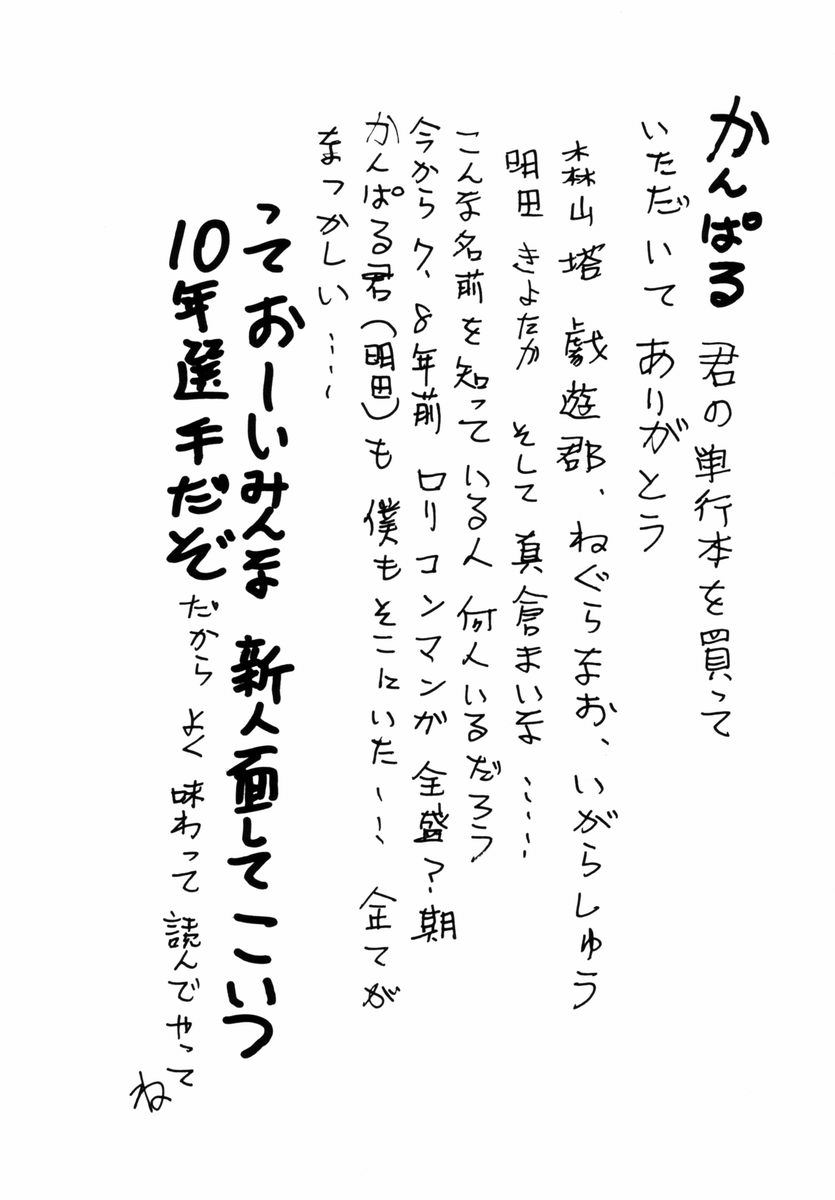 かんぱる君の単行本を買って
いただいてありがとう
森山塔 戯遊郡、ねぐらなお、いがらしゅう
明田きよたか そして真倉まいな……
こんな名前を知っている人何人いるだろう
今から7、8年前ロリコンマンガ全盛?期
かんぱる君(明田)も僕もそこにいた… 全てが
なつかしい……
っておーいみんな 新人面してこいつ
10年選手だぞだから よく味わって読んでやって
ね